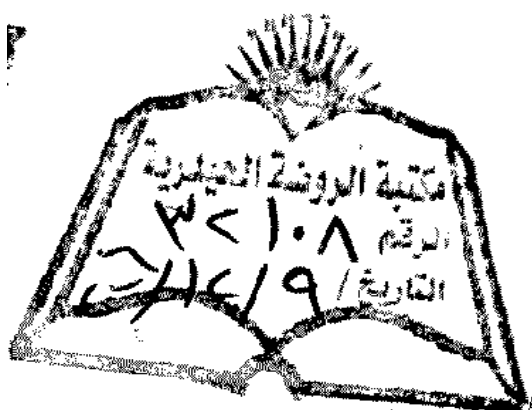 مكتبة الروضة الحيدرية
الرقم ٣٢١٠٨
التاريخ / ٩ /